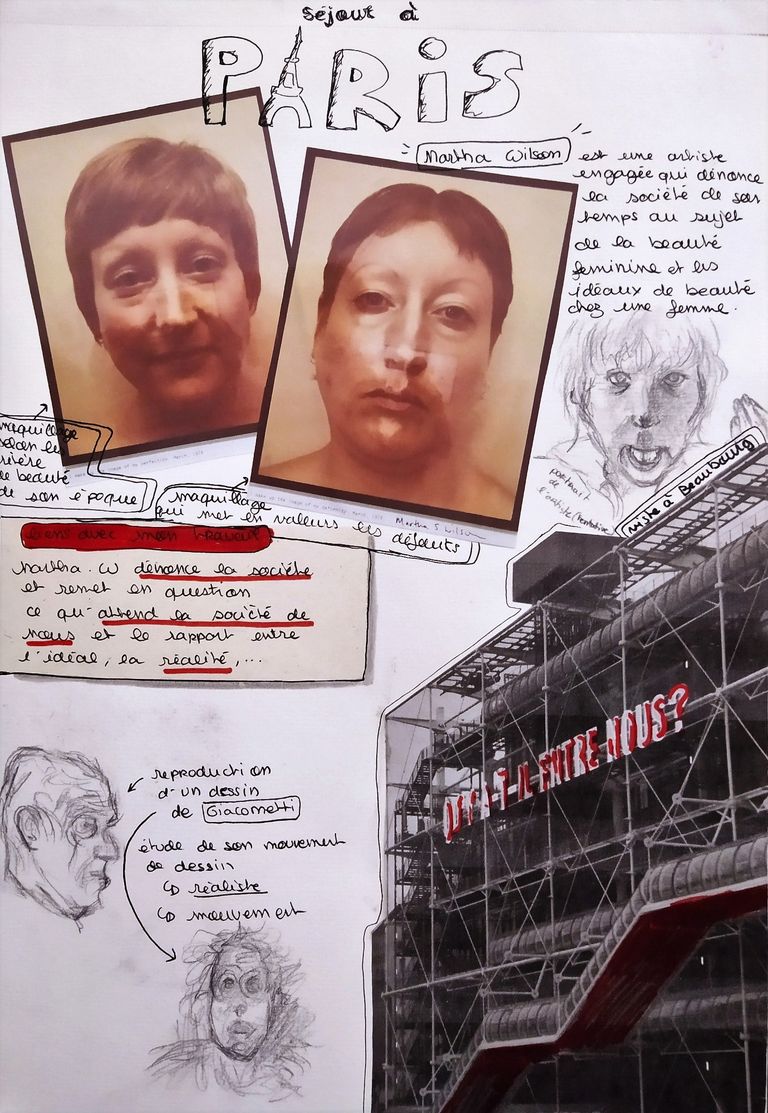 séjour à
PARIS
Martha Wilson est une artiste
engagée qui dénonce
la société de son
temps au sujet
de la beauté
feminine et les
idéaux de beauté
chez une femme.
maquillage
selon les
critère
de beauté
de son époque
maquillage
qui met en valeurs les défauts
Martha S Wilson
portrait
de
l'artiste
visite à Beaubourg
liens avec mon travail
Martha. W dénonce la société
et remet en question
ce qu'attend la société de
nous et le rapport entre
l'idéal, la réalité,...
QU'Y A-T-IL ENTRE NOUS?
reproduction
d'un dessin
de Giacometti
étude de son mouvement
de dessin
↳ réaliste
↳ mouvement